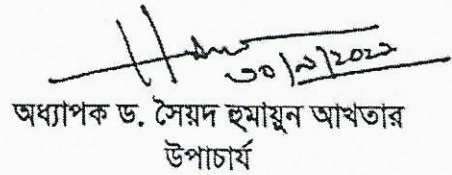 ৩০|৯|২০২১
অধ্যাপক ড. সৈয়দ হুমায়ুন আখতার
উপাচার্য